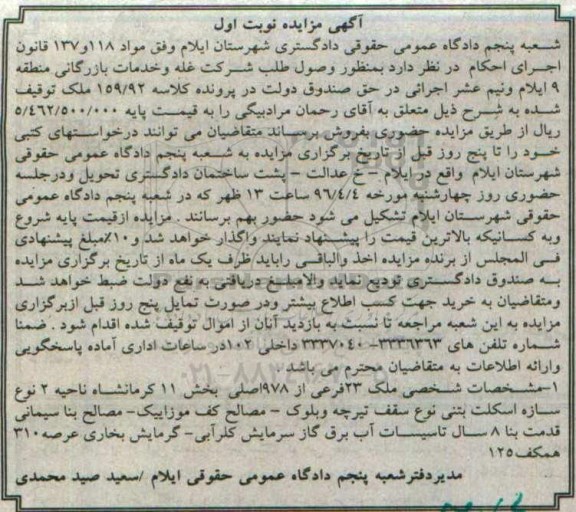 آگهی مزایده نوبت اول
شعبه پنجم دادگاه عمومی حقوقی دادگستری شهرستان ایلام وفق مواد ۱۱۸و۱۳۷ قانون
اجرای احکام در نظر دارد بمنظور وصول طلب شرکت غله وخدمات بازرگانی منطقه
۹ ایلام ونیم عشر اجرائی در حق صندوق دولت در پرونده کلاسه ۱۵۹/۹۲ ملک توقیف
شده به شرح ذیل متعلق به آقای رحمان مرادبیگی را به قیمت پایه ۵/۴۶۲/۵۰۰/۰۰۰
ریال از طریق مزایده حضوری بفروش برساند متقاضیان می توانند درخواستهای کتبی
خود را تا پنج روز قبل از تاریخ برگزاری مزایده به شعبه پنجم دادگاه عمومی حقوقی
شهرستان ایلام واقع در ایلام – خ عدالت – پشت ساختمان دادگستری تحویل ودرجلسه
حضوری روز چهارشنبه مورخه ۹۶/۴/۴ ساعت ۱۳ ظهر که در شعبه پنجم دادگاه عمومی
حقوقی شهرستان ایلام تشکیل می شود حضور بهم برسانند . مزایده ازقیمت پایه شروع
وبه کسانیکه بالاترین قیمت را پیشنهاد نمایند واگذار خواهد شد و۱۰٪مبلغ پیشنهادی
فی المجلس از برنده مزایده اخذ والباقی راباید ظرف یک ماه از تاریخ برگزاری مزایده
به صندوق دادگستری تودیع نماید والامبلغ دریافتی به نفع دولت ضبط خواهد شد
ومتقاضیان به خرید جهت کسب اطلاع بیشتر ودر صورت تمایل پنج روز قبل ازبرگزاری
مزایده به این شعبه مراجعه تا نسبت به بازدید آنان از اموال توقیف شده اقدام شود . ضمنا
شماره تلفن های ۳۳۳۶۳۶۳– ۳۳۳۷۰۴۰ داخلی ۱۰۲در ساعات اداری آماده پاسخگویی
وارائه اطلاعات به متقاضیان محترم می باشد
۱–مشخصات شخصی ملک ۲۳فرعی از ۹۷۸اصلی بخش ۱۱ کرمانشاه ناحیه ۲ نوع
سازه اسکلت بتنی نوع سقف تیرچه وبلوک – مصالح کف موزاییک– مصالح بنا سیمانی
قدمت بنا ۸ سال تاسیسات آب برق گاز سرمایش کلرآبی– گرمایش بخاری عرصه۳۱۰
همکف۱۲۵
مدیردفترشعبه پنجم دادگاه عمومی حقوقی ایلام /سعید صید محمدی